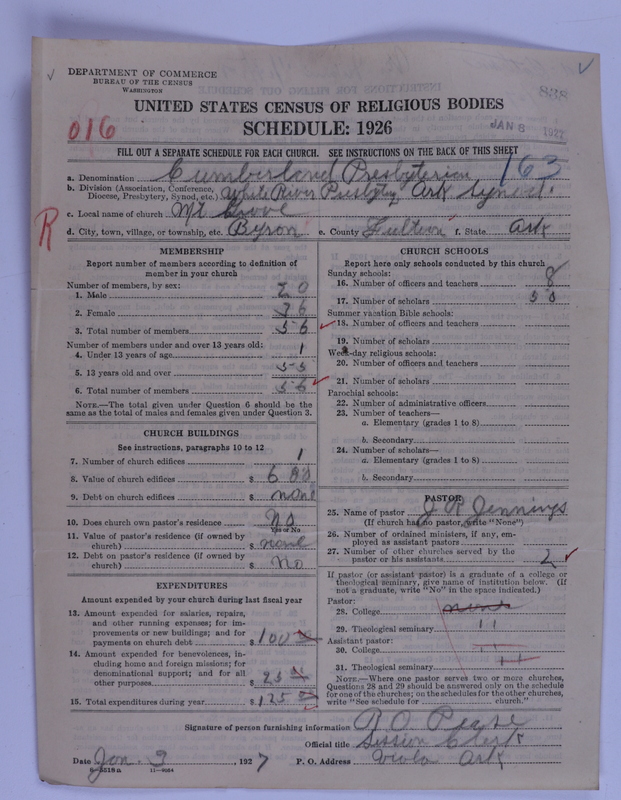 DEPARTMENT OF COMMERCE
BUREAU OF THE CENSUS
WASHINGTON
UNITED STATES CENSUS OF RELIGIOUS BODIES
SCHEDULE: 1926
016
JAN 8 1927
FILL OUT A SEPARATE SCHEDULE FOR EACH CHURCH. SEE INSTRUCTIONS ON THE BACK OF THIS SHEET
163
a. Denomination Cumberland Presbyterian
b. Division (Association, Conference, Diocese, Presbytery, Synod, etc.) White River Presbytry Ark Synod.
c. Local name of church Mt Grove
R
d. City, town, village, or township, etc. Byron e. County Fulton f. State Ark
MEMBERSHIP
Report number of members according to definition of member in your church
Number of members, by sex:
1. Male 20
2. Female 36
3. Total number of members 56
Number of members under and over 13 years old:
4. Under 13 years of age 1
5. 13 years old and over 55
6. Total number of members 56
NOTE.—The total given under Question 6 should be the same as the total of males and females given under Question 3.
CHURCH BUILDINGS
See instructions, paragraphs 10 to 12
7. Number of church edifices 1
8. Value of church edifices $ 600
9. Debt on church edifices $ none
10. Does church own pastor's residence No
Yes or No
11. Value of pastor's residence (if owned by church) $ none
12. Debt on pastor's residence (if owned by church) $ No
EXPENDITURES
Amount expended by your church during last fiscal year
13. Amount expended for salaries, repairs, and other running expenses; for improvements or new buildings; and for payments on church debt $ 100
14. Amount expended for benevolences, including home and foreign missions; for denominational support; and for all other purposes $ 25
15. Total expenditures during year $ 125
CHURCH SCHOOLS
Report here only schools conducted by this church
Sunday schools:
16. Number of officers and teachers 8
17. Number of scholars 50
Summer vacation Bible schools:
18. Number of officers and teachers
19. Number of scholars
Week-day religious schools:
20. Number of officers and teachers
21. Number of scholars
Parochial schools:
22. Number of administrative officers
23. Number of teachers—
a. Elementary (grades 1 to 8)
b. Secondary
24. Number of scholars—
a. Elementary (grades 1 to 8)
b. Secondary
PASTOR
25. Name of pastor J R Jennings
(If church has no pastor, write "None")
26. Number of ordained ministers, if any, employed as assistant pastors
27. Number of other churches served by the pastor or his assistants 2
If pastor (or assistant pastor) is a graduate of a college or theological seminary, give name of institution below. (If not a graduate, write "No" in the space indicated.)
Pastor:
28. College none
29. Theological seminary 11
Assistant pastor:
30. College 11
31. Theological seminary 11
NOTE.—Where one pastor serves two or more churches, Questions 28 and 29 should be answered only on the schedule for one of the churches; on the schedules for the other churches, write "See schedule for church."
Signature of person furnishing information R. O. Pease
Official title Session Clerk
Date Jan. 3, 1927 P. O. Address Viola Ark
11—9064